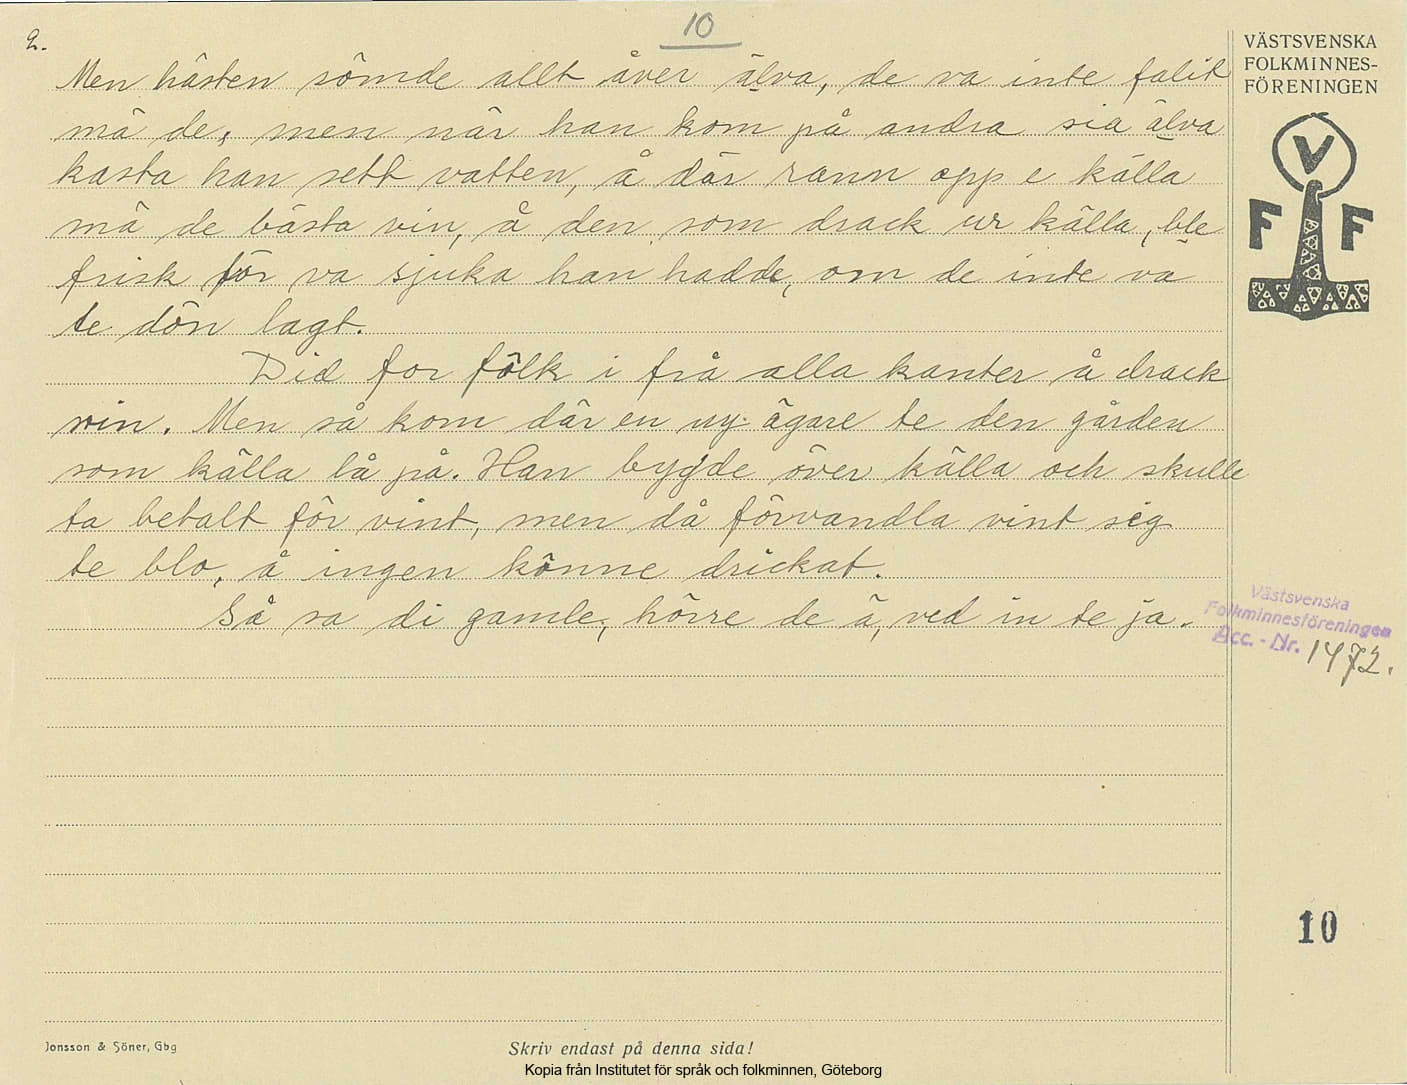 2.
10
Men hästen sömde allt åver älva, de va inte falit
mä de, men når han kom på andra sia älva
kasta han sett vatten, å där rann opp e källa
mä de bästa vin, å den som drack ur källa, ble
frisk för va sjuka han hadde, om de inte va
te dön lagt.
Did for fölk i frå alla kanter å drack
vin. Men så kom där en ny ägare te den gården
som källa lå på. Han bygde över källa och skulle
ta betalt för vint, men då förvandla vint sig
te blo, å ingen könne drickat.
Så sa di gamle, hörre de ä, ved in te ja.
VÄSTSVENSKA
FOLKMINNES-
FÖRENINGEN
V
F F
Västsvenska
Folkminnesföreningen
Acc. - Nr. 1472.
10
Jonsson & Söner, Gbg
Skriv endast på denna sida!
Kopia från Institutet för språk och folkminnen, Göteborg